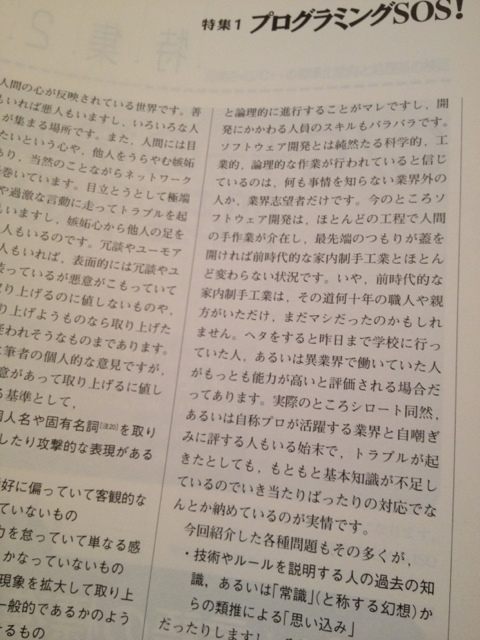 特集1 プログラミングSOS!
人間の心が反映されている世界です。善
もいれば悪人もいますし、いろいろな人
が集まる場所です。また、人間には目
たいという心や、他人をうらやむ嫉妬
あり、当然のことながらネットワーク
巻いています。目立とうとして極端
や過激な言動に走ってトラブルを起
もいますし、嫉妬心から他人の足を
人もいるのです。冗談やユーモア
人もいれば、表面的には冗談やユ
装っているが悪意がこもっていて
り上げるのに値しないものや、
り上げようものなら取り上げた
疑われそうなものまであります。
に筆者の個人的な意見ですが、
意があって取り上げるに値し
る基準として、
個人名や固有名詞[注20]を取り
したり攻撃的な表現がある
好に偏っていて客観的な
ていないもの
力を怠っていて単なる感
かなっていないもの
現象を拡大して取り上
一般的であるかのよう
するもの
と論理的に進行することがマレですし、開
発にかかわる人員のスキルもバラバラです。
ソフトウェア開発とは純然たる科学的、工
業的、論理的な作業が行われていると信じ
ているのは、何も事情を知らない業界外の
人か、業界志望者だけです。今のところソ
フトウェア開発は、ほとんどの工程で人間
の手作業が介在し、最先端のつもりが蓋を
開ければ前時代的な家内制手工業とほとん
ど変わらない状況です。いや、前時代的な
家内制手工業は、その道何十年の職人や親
方がいただけ、まだマシだったのかもしれ
ません。ヘタをすると昨日まで学校に行っ
ていた人、あるいは異業界で働いていた人
がもっとも能力が高いと評価される場合だ
ってあります。実際のところシロート同然、
あるいは自称プロが活躍する業界と自嘲ぎ
みに評する人もいる始末で、トラブルが起
きたとしても、もともと基本知識が不足し
ているのでいき当たりばったりの対応でな
んとか納めているのが実情です。
今回紹介した各種問題もその多くが、
・技術やルールを説明する人の過去の知
識、あるいは「常識」(と称する幻想)か
らの類推による「思い込み」
だったりします